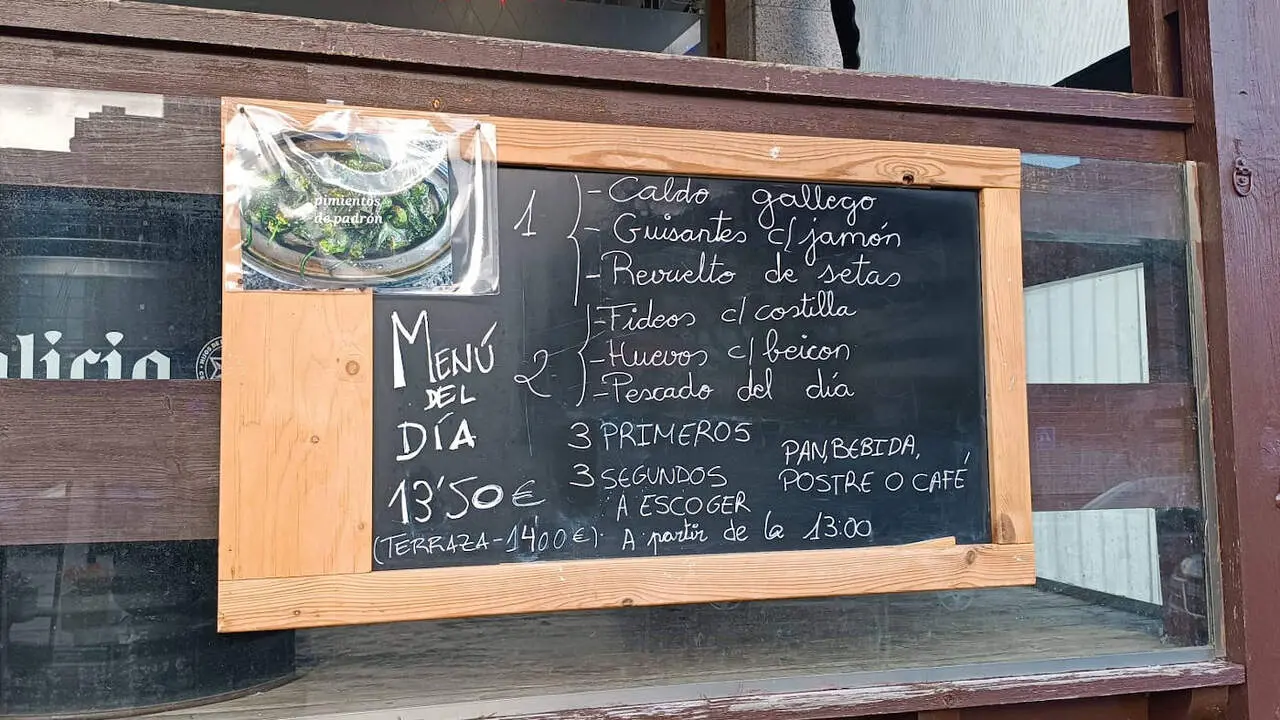 pimientos
de padrón
1
- Caldo gallego
- Guisantes c/ jamón
- Revuelto de setas
2
- Fideos c/ costilla
- Huevos c/ beicon
- Pescado del día
MENÚ
DEL
DÍA
13'50€
(TERRAZA - 14'00€).
3 PRIMEROS
3 SEGUNDOS
A ESCOGER
PAN, BEBIDA,
POSTRE O CAFÉ
A partir de la 13:00
alicia